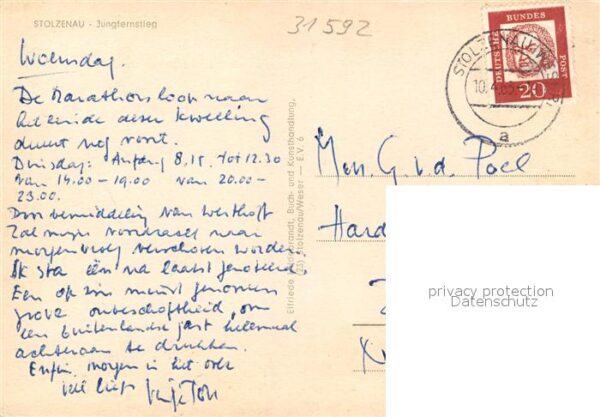 STOLZENAU - Jungfernstieg
31592
Woensdag.
De Marathonloop naar
het einde dezer kwelling
duurt nog voort.
Dinsdag: Anfang 8,15 tot 12.30
van 14.00 - 19.00 van 20.00 -
23.00.
Door bemiddeling van Westhoff
zal mijn voordracht naar
morgenvroeg verschoven worden.
Ik sta één na laatst genoteerd.
Een op zijn minst genomen
grove onbeschoftheid, om
een buitenlandse gast helemaal
achteraan te drukken.
Enfin, morgen is het over
veel liefs
Elfriede Buch- und Kunsthandlung,
(23) Stolzenau/Weser — E.V. 6
DEUTSCHE BUNDES POST
20
STOLZENAU
10.4.63
a
Mevr. G. v. d. Poel
Hard
privacy protection
Datenschutz